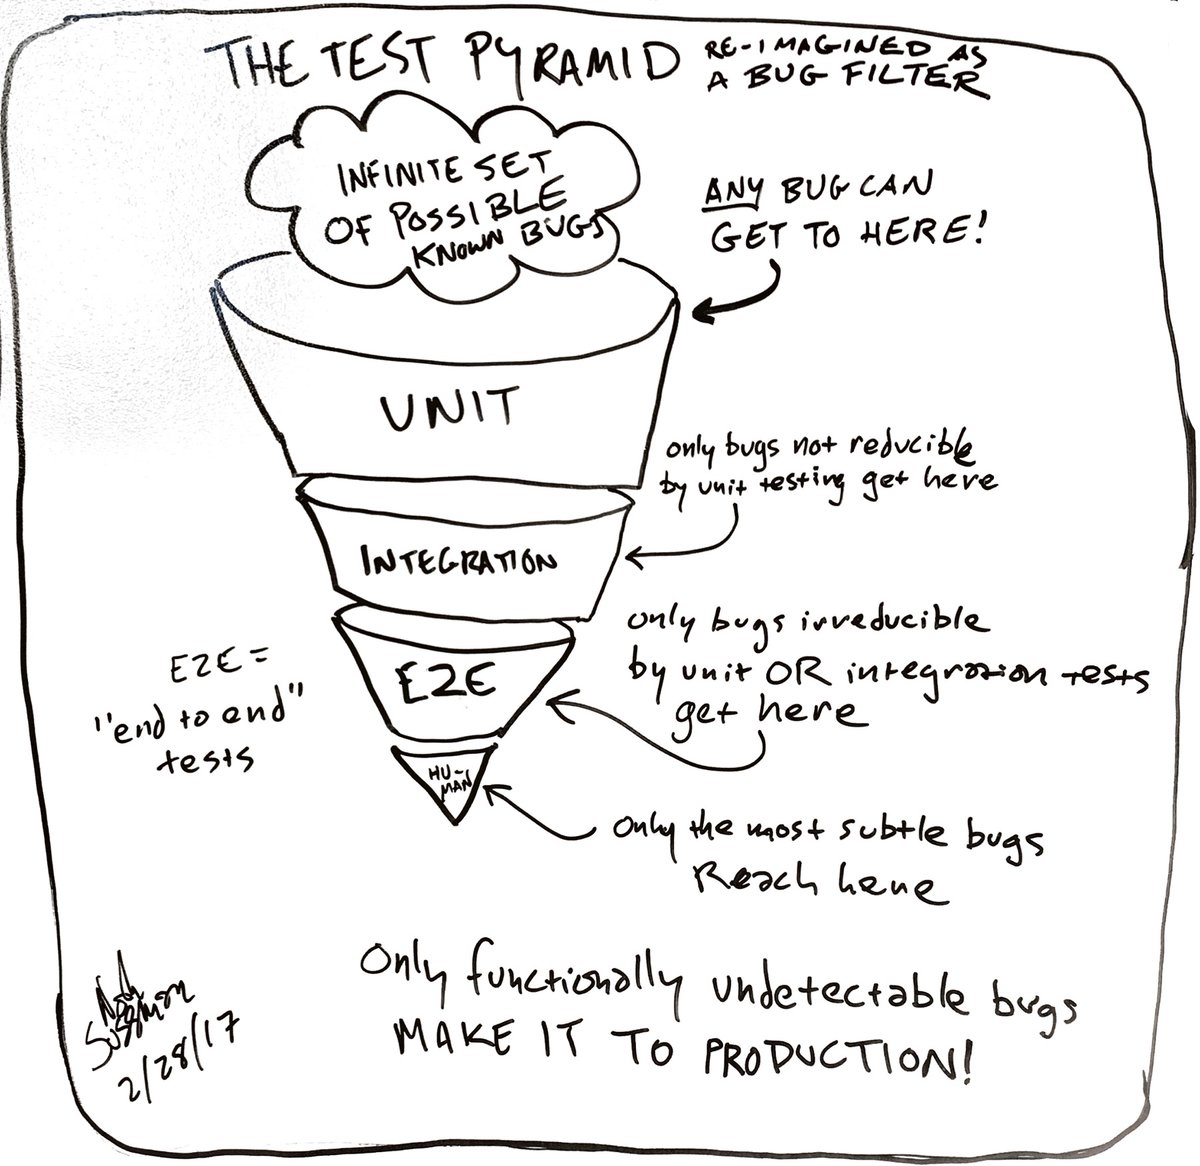 THE TEST PYRAMID RE-IMAGINED AS
A BUG FILTER
INFINITE SET
OF POSSIBLE
KNOWN BUGS
ANY BUG CAN
GET TO HERE!
UNIT
only bugs not reducible
by unit testing get here
INTEGRATION
only bugs irreducible
by unit OR integration tests
get here
E2E
E2E =
"end to end"
tests
HU-
MAN
Only the most subtle bugs
Reach here
Only functionally undetectable bugs
MAKE IT TO PRODUCTION!
Noah
Sussman
2/28/17